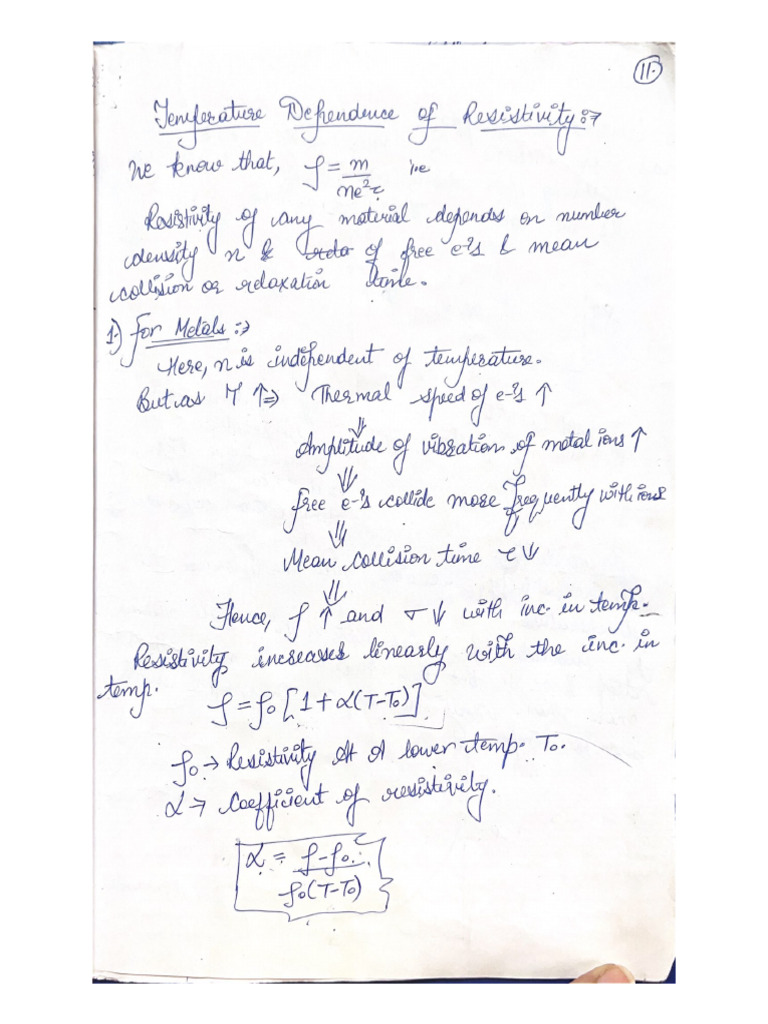 11.
Temperature Dependence of Resistivity:→
We know that, ρ = m/ne²τ i.e
Resistivity of any material depends on number
density n & of free e⁻'s & mean
collision or relaxation time.
1.) For Metals :→
Here, n is independent of temperature.
But as T ↑ ⇒ Thermal speed of e⁻'s ↑
⇓
Amplitude of vibration of metal ions ↑
⇓
free e⁻'s collide more frequently with ions
⇓
Mean collision time τ ↓
⇓
Hence, ρ ↑ and σ ↓ with inc. in temp.
Resistivity increases linearly with the inc. in
temp.
ρ = ρ₀ [1 + α(T-T₀)]
ρ₀ → Resistivity At A lower temp. T₀.
α → Coefficient of resistivity.
α = ρ-ρ₀ / ρ₀(T-T₀)